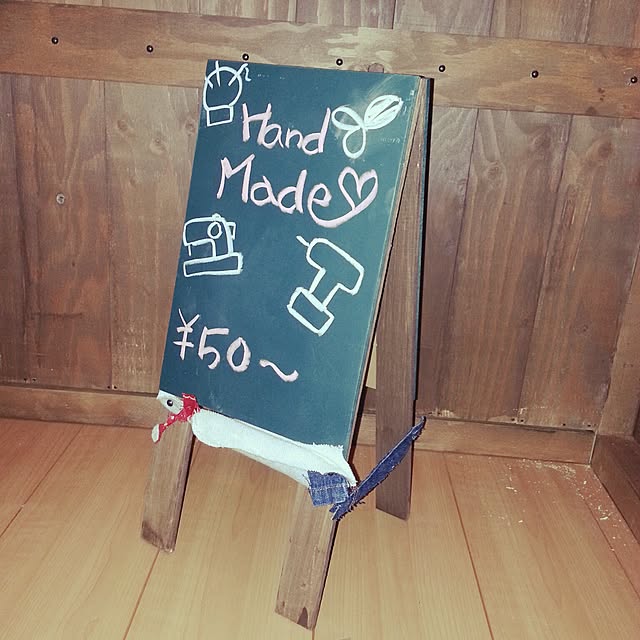 Hand
Made
¥50~